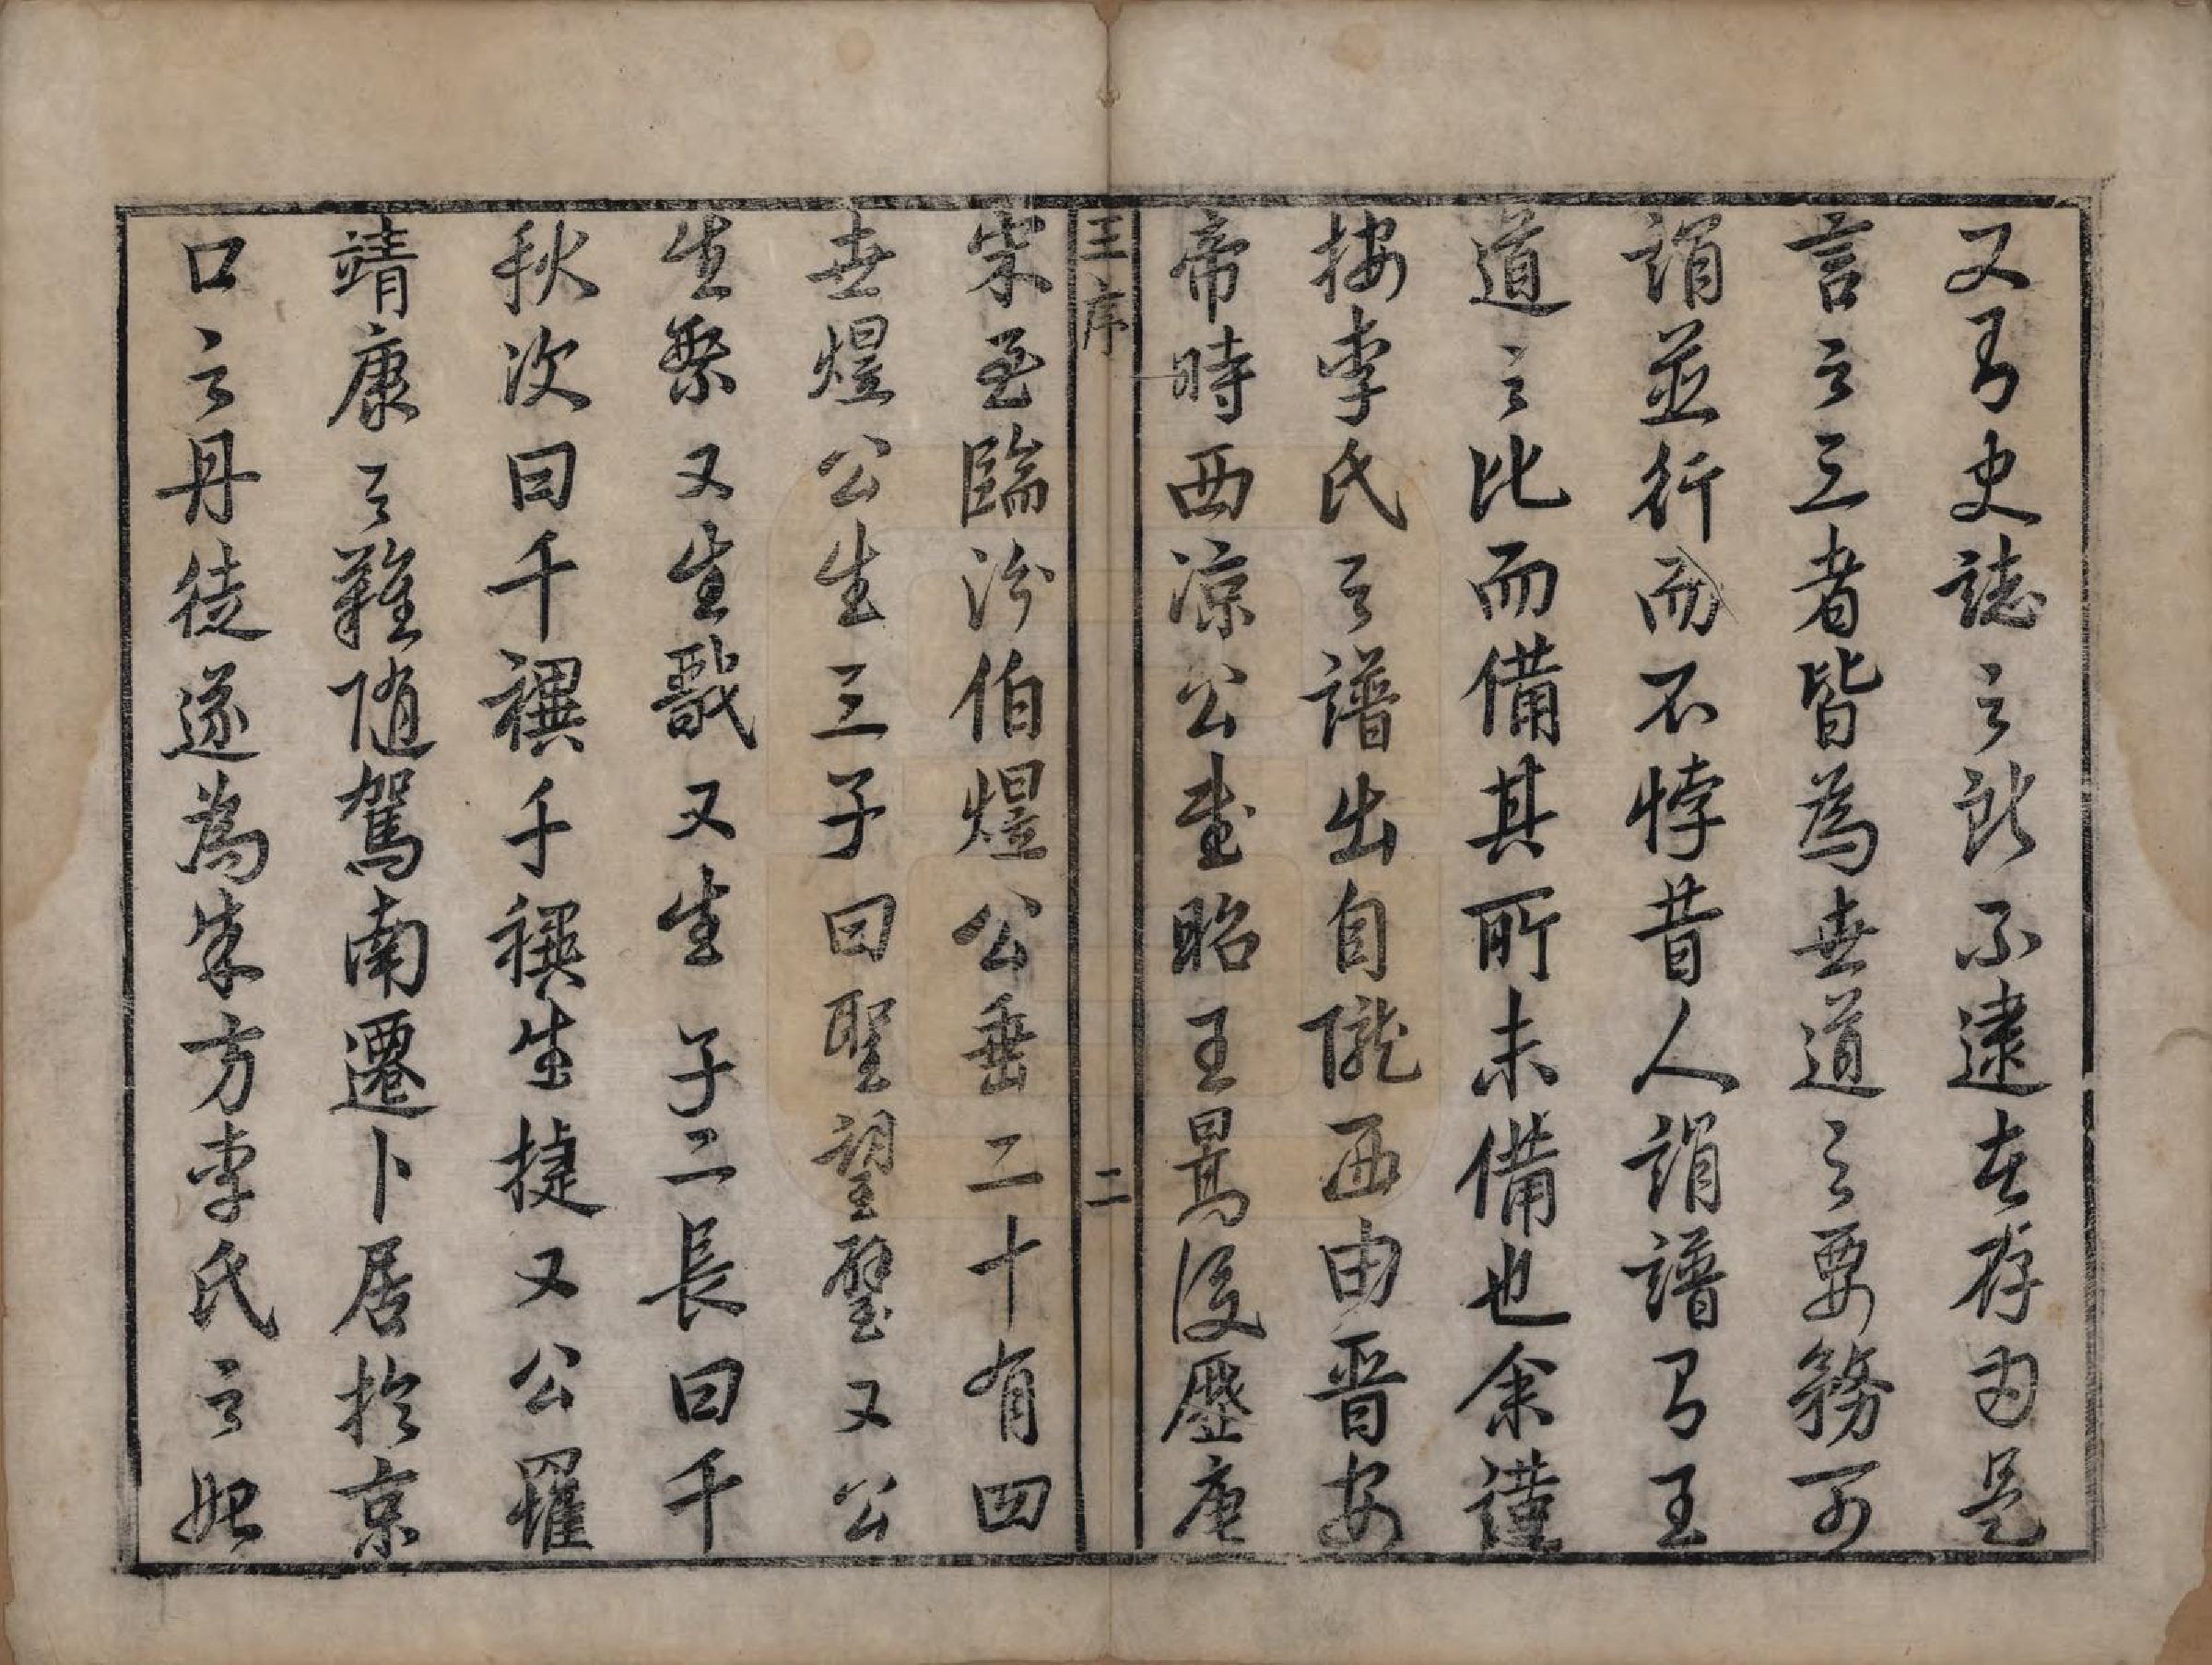 又有史誌之所不逮在存由是
言之三者皆為世道之要務可
謂並行而不悖昔人謂譜有王
道之比而備其所未備也余謹
按李氏之譜出自隴西由晉安
帝時西凉公武昭王暠後歷唐
王序
二
宋至臨汾伯煜公垂二十有四
世煜公生三子曰聖望璧又公
生祭又生戩又生子二長曰千
秋次曰千禩千禩生捷又公羅
靖康之難随駕南遷卜居扵京
口之丹徒遂為朱方李氏之始